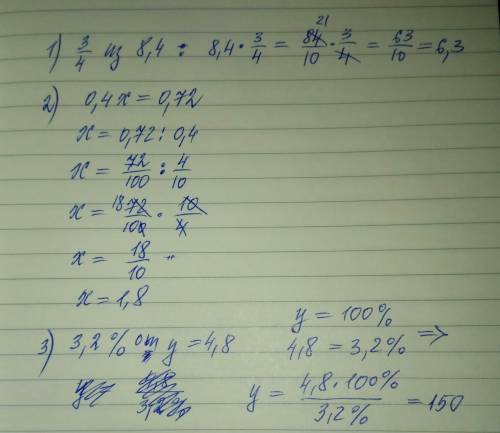 1) 3/4 из 8,4 : 8,4 · 3/4 = 84/10 21 · 3/4 = 63/10 = 6,3
2) 0,4x = 0,72
x = 0,72 : 0,4
x = 72/100 : 4/10
x = 18 72/100 · 10/4
x = 18/10
x = 1,8
3) 3,2% от y = 4,8
y = 100%
4,8 = 3,2% =>
y = 4,8·100%/3,2% = 150